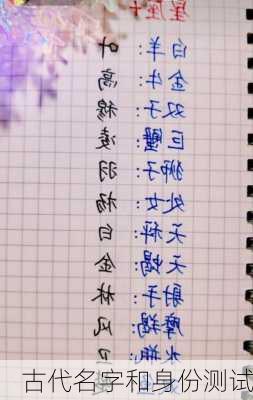 星座+
白羊：叶
金牛：高
双子：穆
巨蟹：凌
狮子：羽
处女：杨
天秤：白
天蝎：金
射手：林
摩羯：风
水瓶：卫
古代名字和身份测试